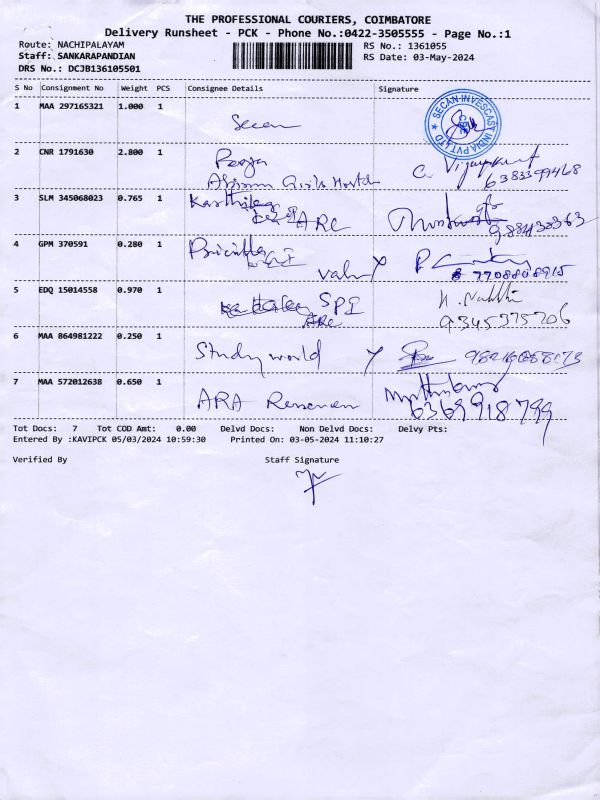 THE PROFESSIONAL COURIERS, COIMBATORE
Delivery Runsheet - PCK - Phone No.:0422-3505555 - Page No.:1
Route: NACHIPALAYAM RS No.: 1361055
Staff: SANKARAPANDIAN RS Date: 03-May-2024
DRS No.: DCJB136105501
S No Consignment No Weight PCS Consignee Details Signature
1 MAA 297165321 1.000 1 Secan
SECAN INVESCAST INDIA PVT LTD
2 CNR 1791630 2.800 1 Pooja
Girls Hostel
6383399468
3 SLM 345068023 0.765 1
ARC
4 GPM 370591 0.280 1
Valu
7708808915
5 EDQ 15014558 0.970 1 SPI
ARC 9345375206
6 MAA 864981222 0.250 1 Study world
7 MAA 572012638 0.650 1 ARA
6369918799
Tot Docs: 7 Tot COD Amt: 0.00 Delvd Docs: Non Delvd Docs: Delvy Pts:
Entered By :KAVIPCK 05/03/2024 10:59:30 Printed On: 03-05-2024 11:10:27
Verified By Staff Signature